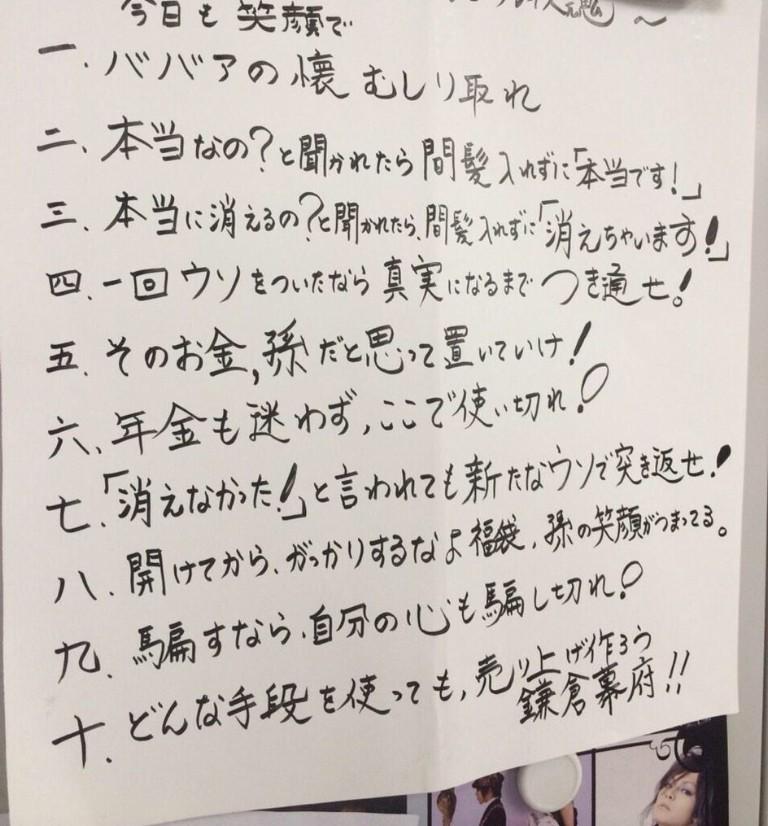 今日も笑顔で
一. ババアの懐むしり取れ
二、本当なの?と聞かれたら間髪入れずに「本当です!」
三、本当に消えるの?と聞かれたら、間髪入れずに「消えちゃいます!」
四、一回ウソをついたなら真実になるまでつき通せ!
五、そのお金,孫だと思って置いていけ!
六、年金も迷わず,ここで使い切れ!
七、「消えなかった!」と言われても新たなウソで突き返せ!
八、開けてから、がっかりするなよ福袋,孫の笑顔がつまってる。
九、騙すなら、自分の心も騙し切れ!
十、どんな手段を使っても,売り上げ作ろう
鎌倉幕府!!